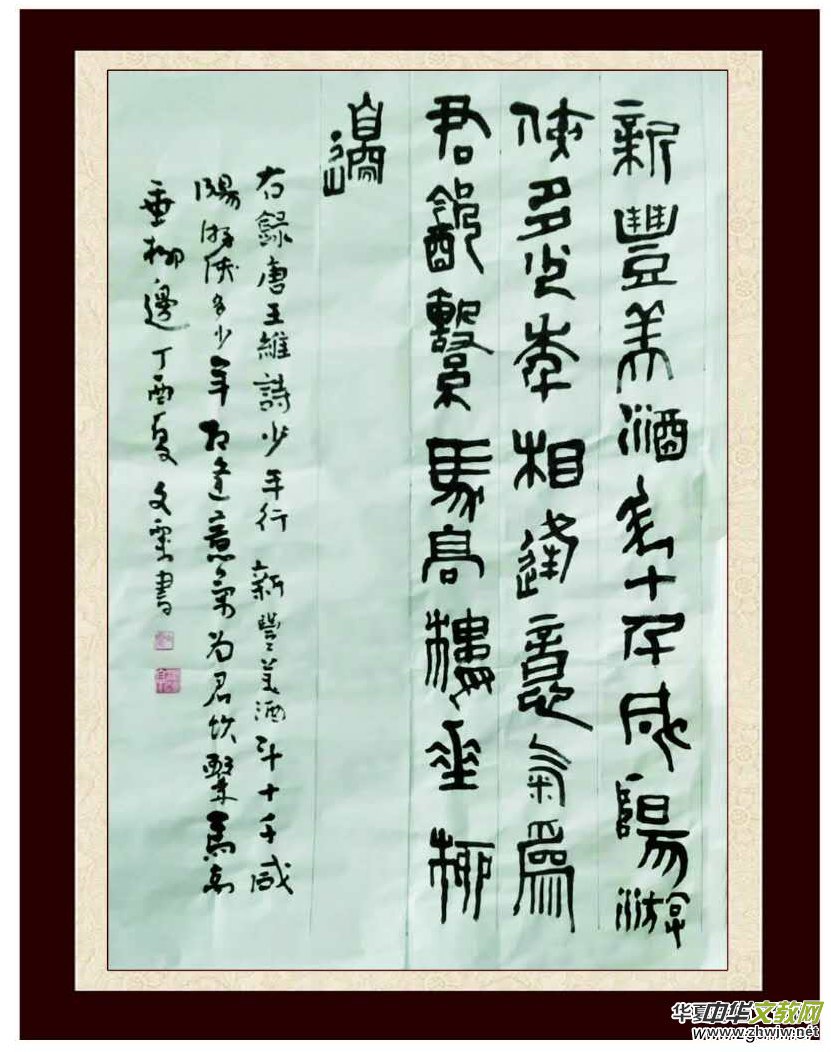 新豐美酒斗十千咸陽游
俠多少年相逢意氣爲
君飲繫馬高樓垂柳
邊
右錄唐王維詩少年行 新豐美酒斗十千咸
陽游俠多少年相逢意氣为君饮繫馬高
垂柳邊丁酉夏文書
华夏中华文教网
www.zhwjw.net